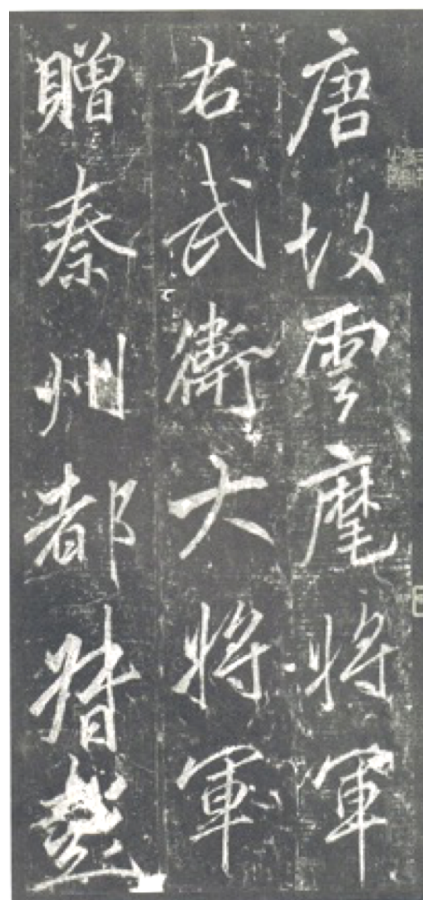 唐故雲麾將軍
右武衛大將軍
贈秦州都督